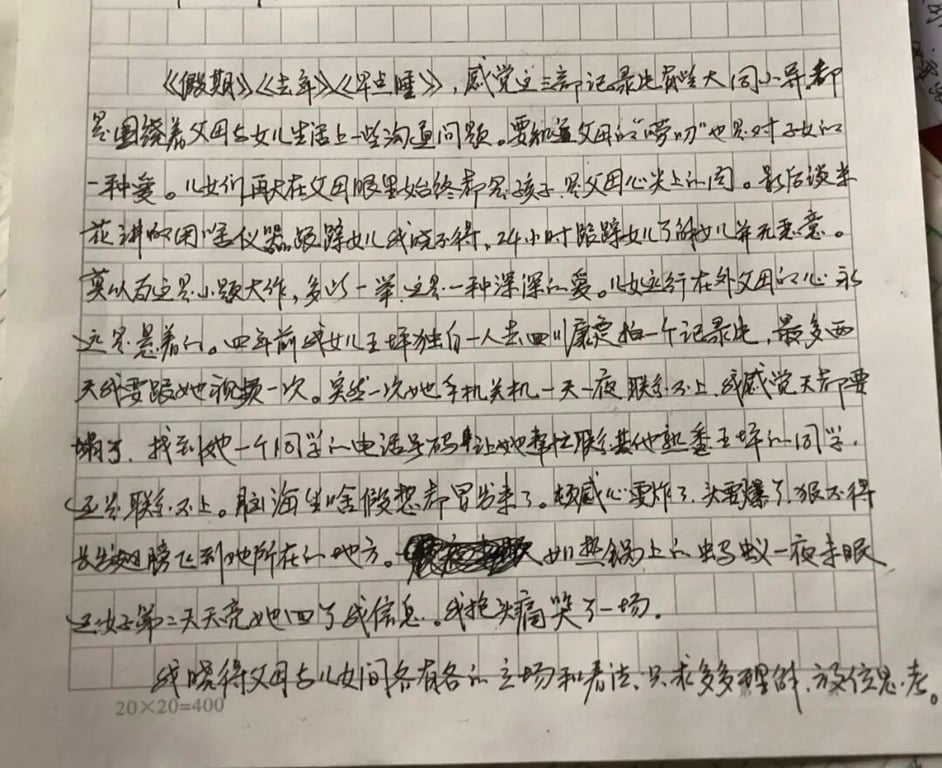 《假期》《去年》《早点睡》，感觉这三部记录片有些大同小异，都
是围绕着父母与女儿生活上一些沟通问题。要知道父母的"唠叨"也是对子女的
一种爱。儿女们再大在父母眼里始终都是孩子，是父母心尖上的肉。最后谈来
花讲的用啥仪器跟踪女儿我晓不得，24小时跟踪女儿了解女儿并无恶意。
莫以为这是小题大作，多此一举，这是一种深深的爱。儿女远行在外父母的心永
远是悬着的。四年前我女儿王坪独自一人去四川康定拍一个记录片，最多两
天我要跟她视频一次。突然一次她手机关机一天一夜联系不上，我感觉天都要
塌了，找到她一个同学的电话号码让她帮忙联系其他熟悉王坪的同学，
还是联系不上。脑海里啥假想都冒出来了。顿感心要炸了，头要爆了，狠不得
长出翅膀飞到她所在的地方。如热锅上的蚂蚁一夜未眠
还好第二天天亮她回了我信息。我抱头痛哭了一场。
我晓得父母与儿女间各有各的立场和看法，只求多多理解，换位思考。
20×20=400